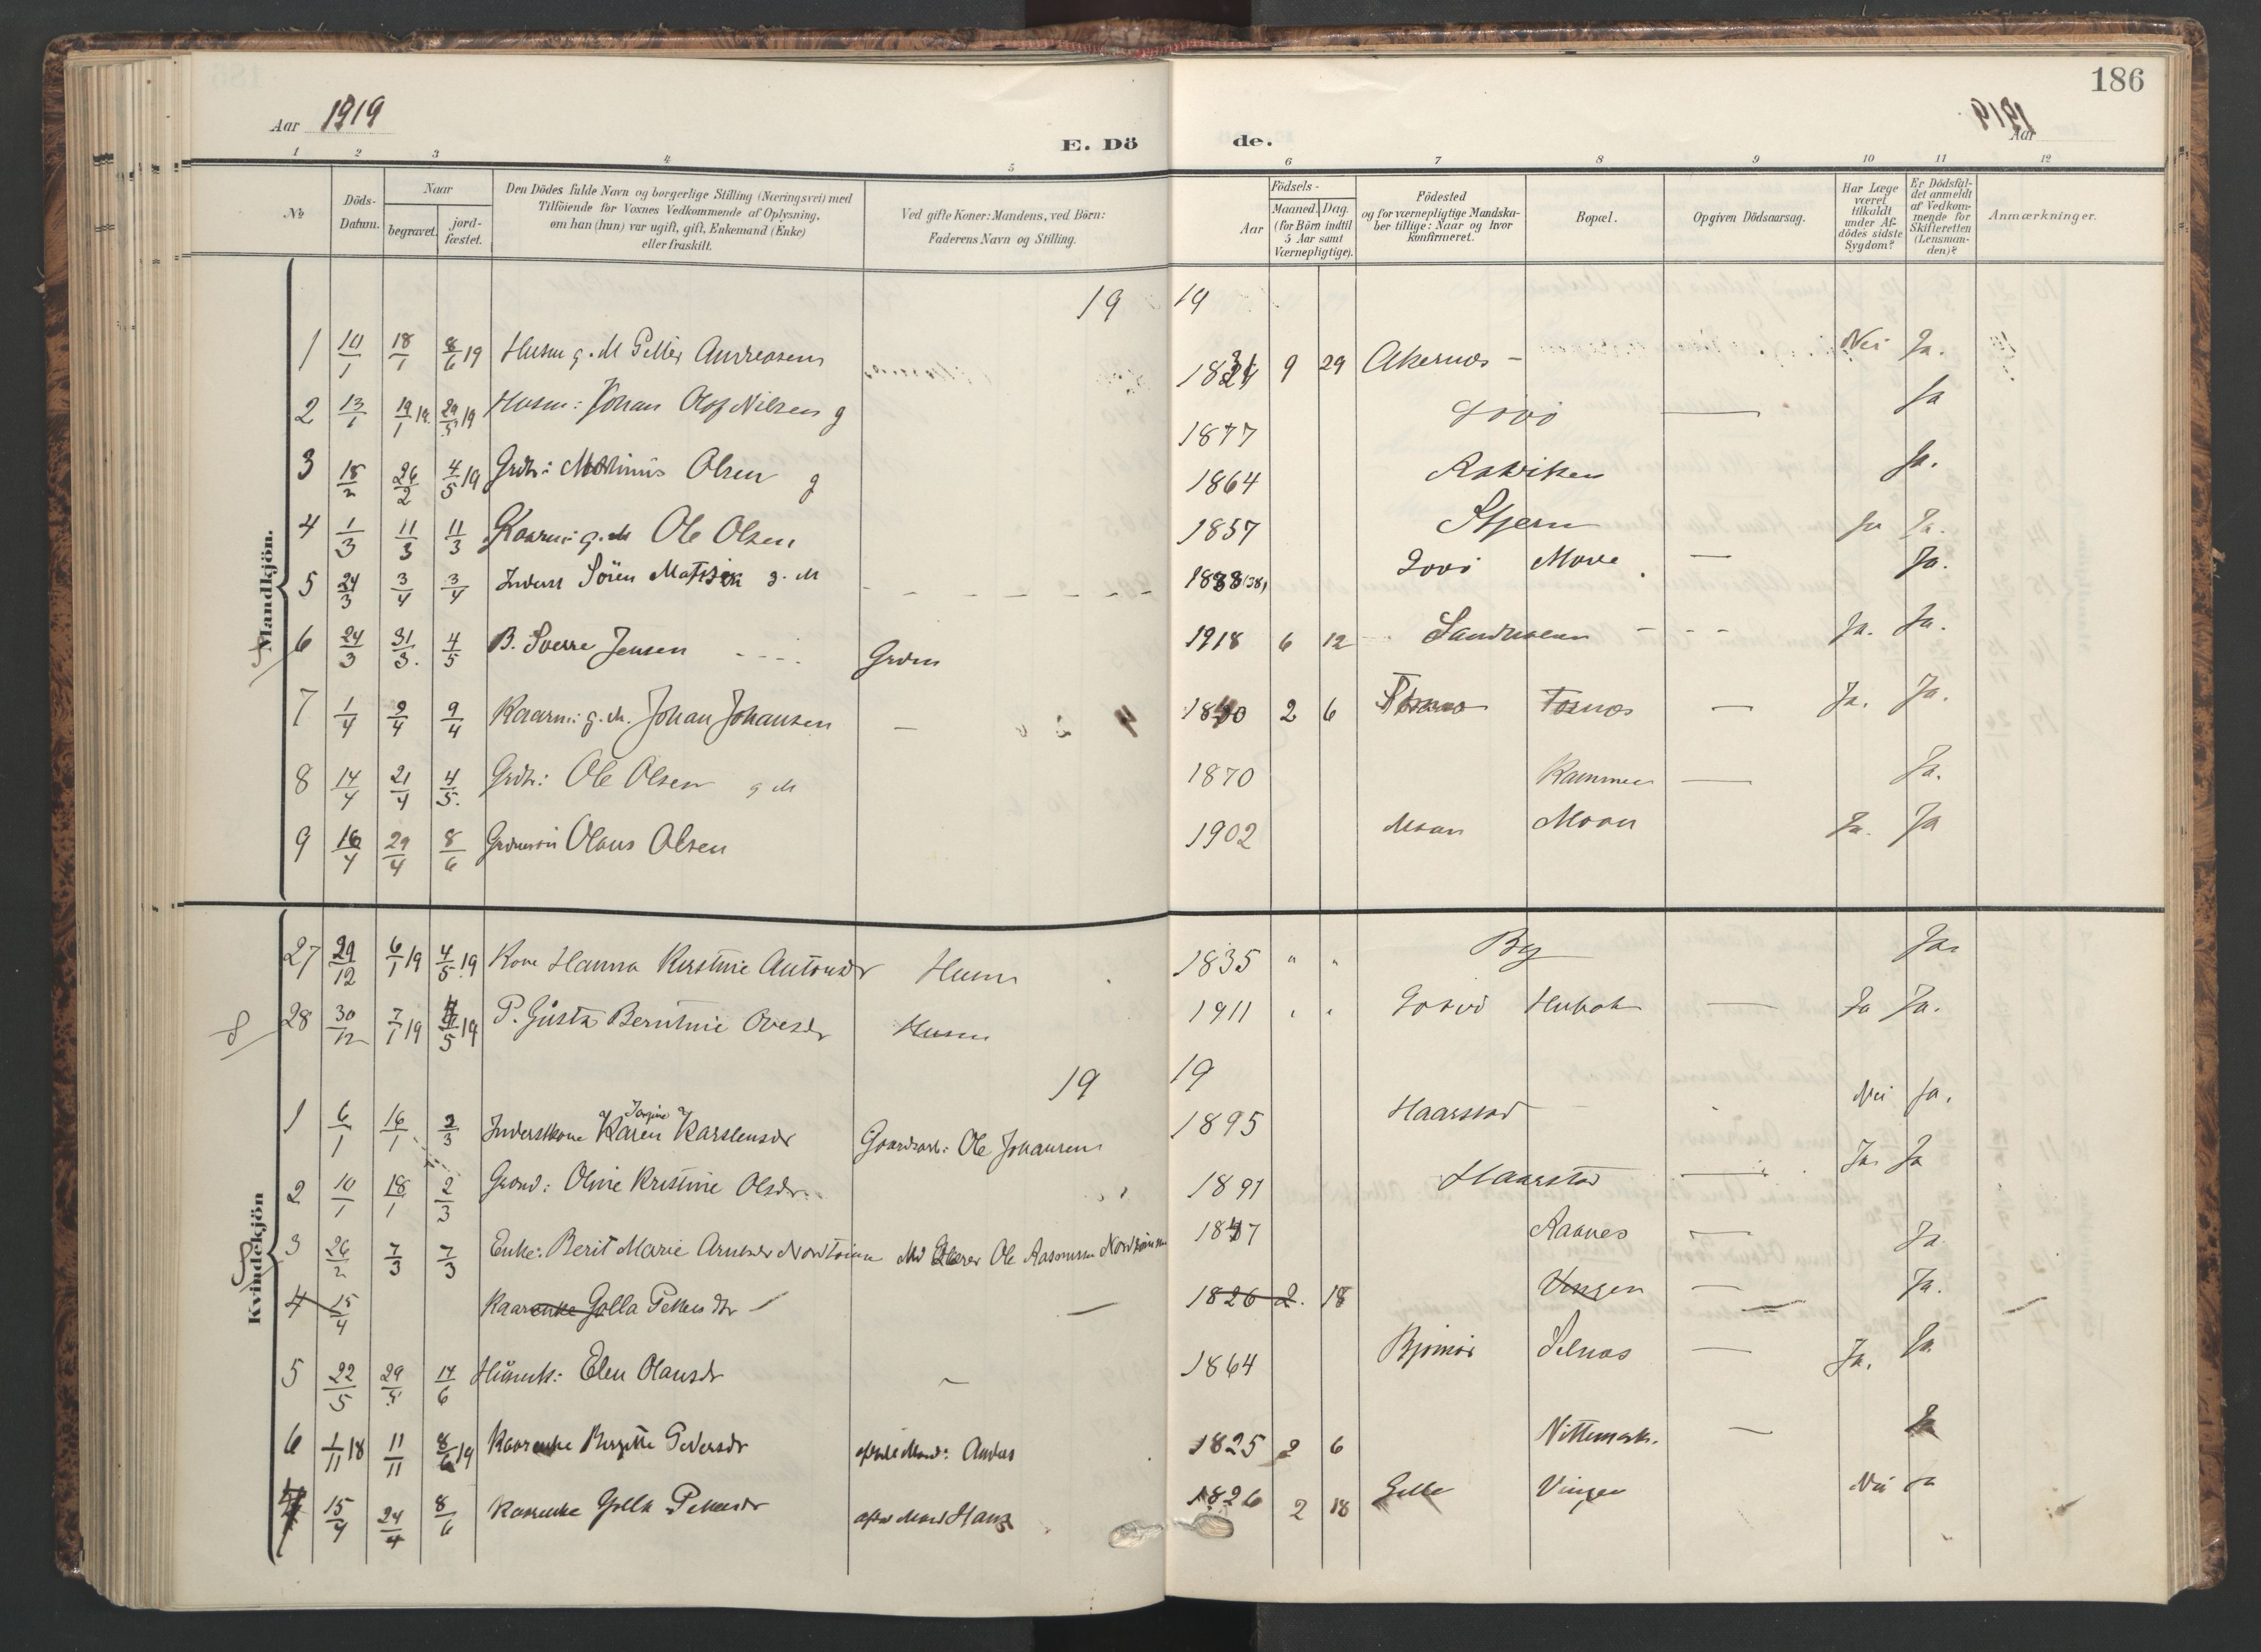 186
Aar 1919
1919 Aar
E. Döde.
1 2 3 4 5 6 7 8 9 10 11 12
No
Döds-Datum.
Naar
begravet.
jord-fæstet.
Den Dödes fulde Navn og borgerlige Stilling (Næringsvei) med
Tilföiende for Voxnes Vedkommende af Oplysning,
om han (hun) var ugift, gift, Enkemand (Enke)
eller fraskilt.
Ved gifte Koner: Mandens, ved Börn:
Faderens Navn og Stilling.
Födsels-
Aar
Maaned. Dag.
(for Börn indtil
5 Aar samt
Værnepligtige).
Födested
og for værnepligtige Mandska-
ber tillige: Naar og hvor
konfirmeret.
Bopæl.
Opgiven Dödsaarsag.
Har Læge
været
tilkaldt
under Af-
dödes sidste
Sygdom?
Er Dödsfal-
det anmeldt
af Vedkom-
mende for
Skifteretten
(Lensman-
den)?
Anmærkninger.
Mandkjön.
19 19
1 10/1 18/1 8/6 19 Husm g. M Petter Andreasen 9 29 Akernes - Nei Ja.
2 13/1 19/1 19 29/5 19 Husm: Johan Olof Nilsen g 1877 — Ja
3 18/2 26/2 4/5 19 Grdbr: Olsen g 1864 Ja.
4 1/3 11/3 11/3 Kaarm: g. M Ole Olsen 1857 Stjern Ja Ja.
5 24/3 3/4 3/4 Inderst Sören g. M 1838 (38) Move — Ja.
6 24/3 31/3. 4/5 B. Sverre Jensen Grdm 1918 6 12 Ja. Ja.
7 1/4 9/4 9/4 Kaarm: g. M. Johan Johansen — 2 6 Fosnes — Ja. Ja.
8 14/4 21/4 4/5. Grdbr: Ole Olsen g M 1870 — Ja.
9 16/4 29/4 8/6 Grdmsön Olaus Olsen 1902 Moan Moan Ja. Ja
Kvindekjön
27 29/12 6/1 19 4/5 19 Kone Hanna Kirstine Antonsdr Husm 1835 " " By Ja.
8 28 30/12 7/1 19 4/5 19 P. Gusta Berntine Ovesdr Husm 1911 " " — Ja Ja.
19 19
1 6/1 16/1 2/3 Inderstkone Karen Karstensdr Gaardarb: Ole Johansen 1895 Haarstad Nei Ja.
2 10/1 18/1 2/3 Oline Kristine Olsdr. 1891 Haarstad — Ja Ja
3 26/2 7/3 7/3 Enke: Berit Marie Arntsdr Ole Rasmusen 1847 Raanes — Ja
4 15/4 Kaarenke Golla Pettersdr — 1826 2. 18 Vingen — Ja.
5 22/5 29/5 14/6 Elen Olausdr 1864 Bjørnør Selnes — Ja. Ja.
6 1/11 18 11/11 8/6 19 Kaarenke Birgitte Pedersdr 1825 2 6 — Ja
4 15/4 24/4 8/6 Kaarenke Golla Pettersdr Hans 1826 2 18 Vingen Nei Ja